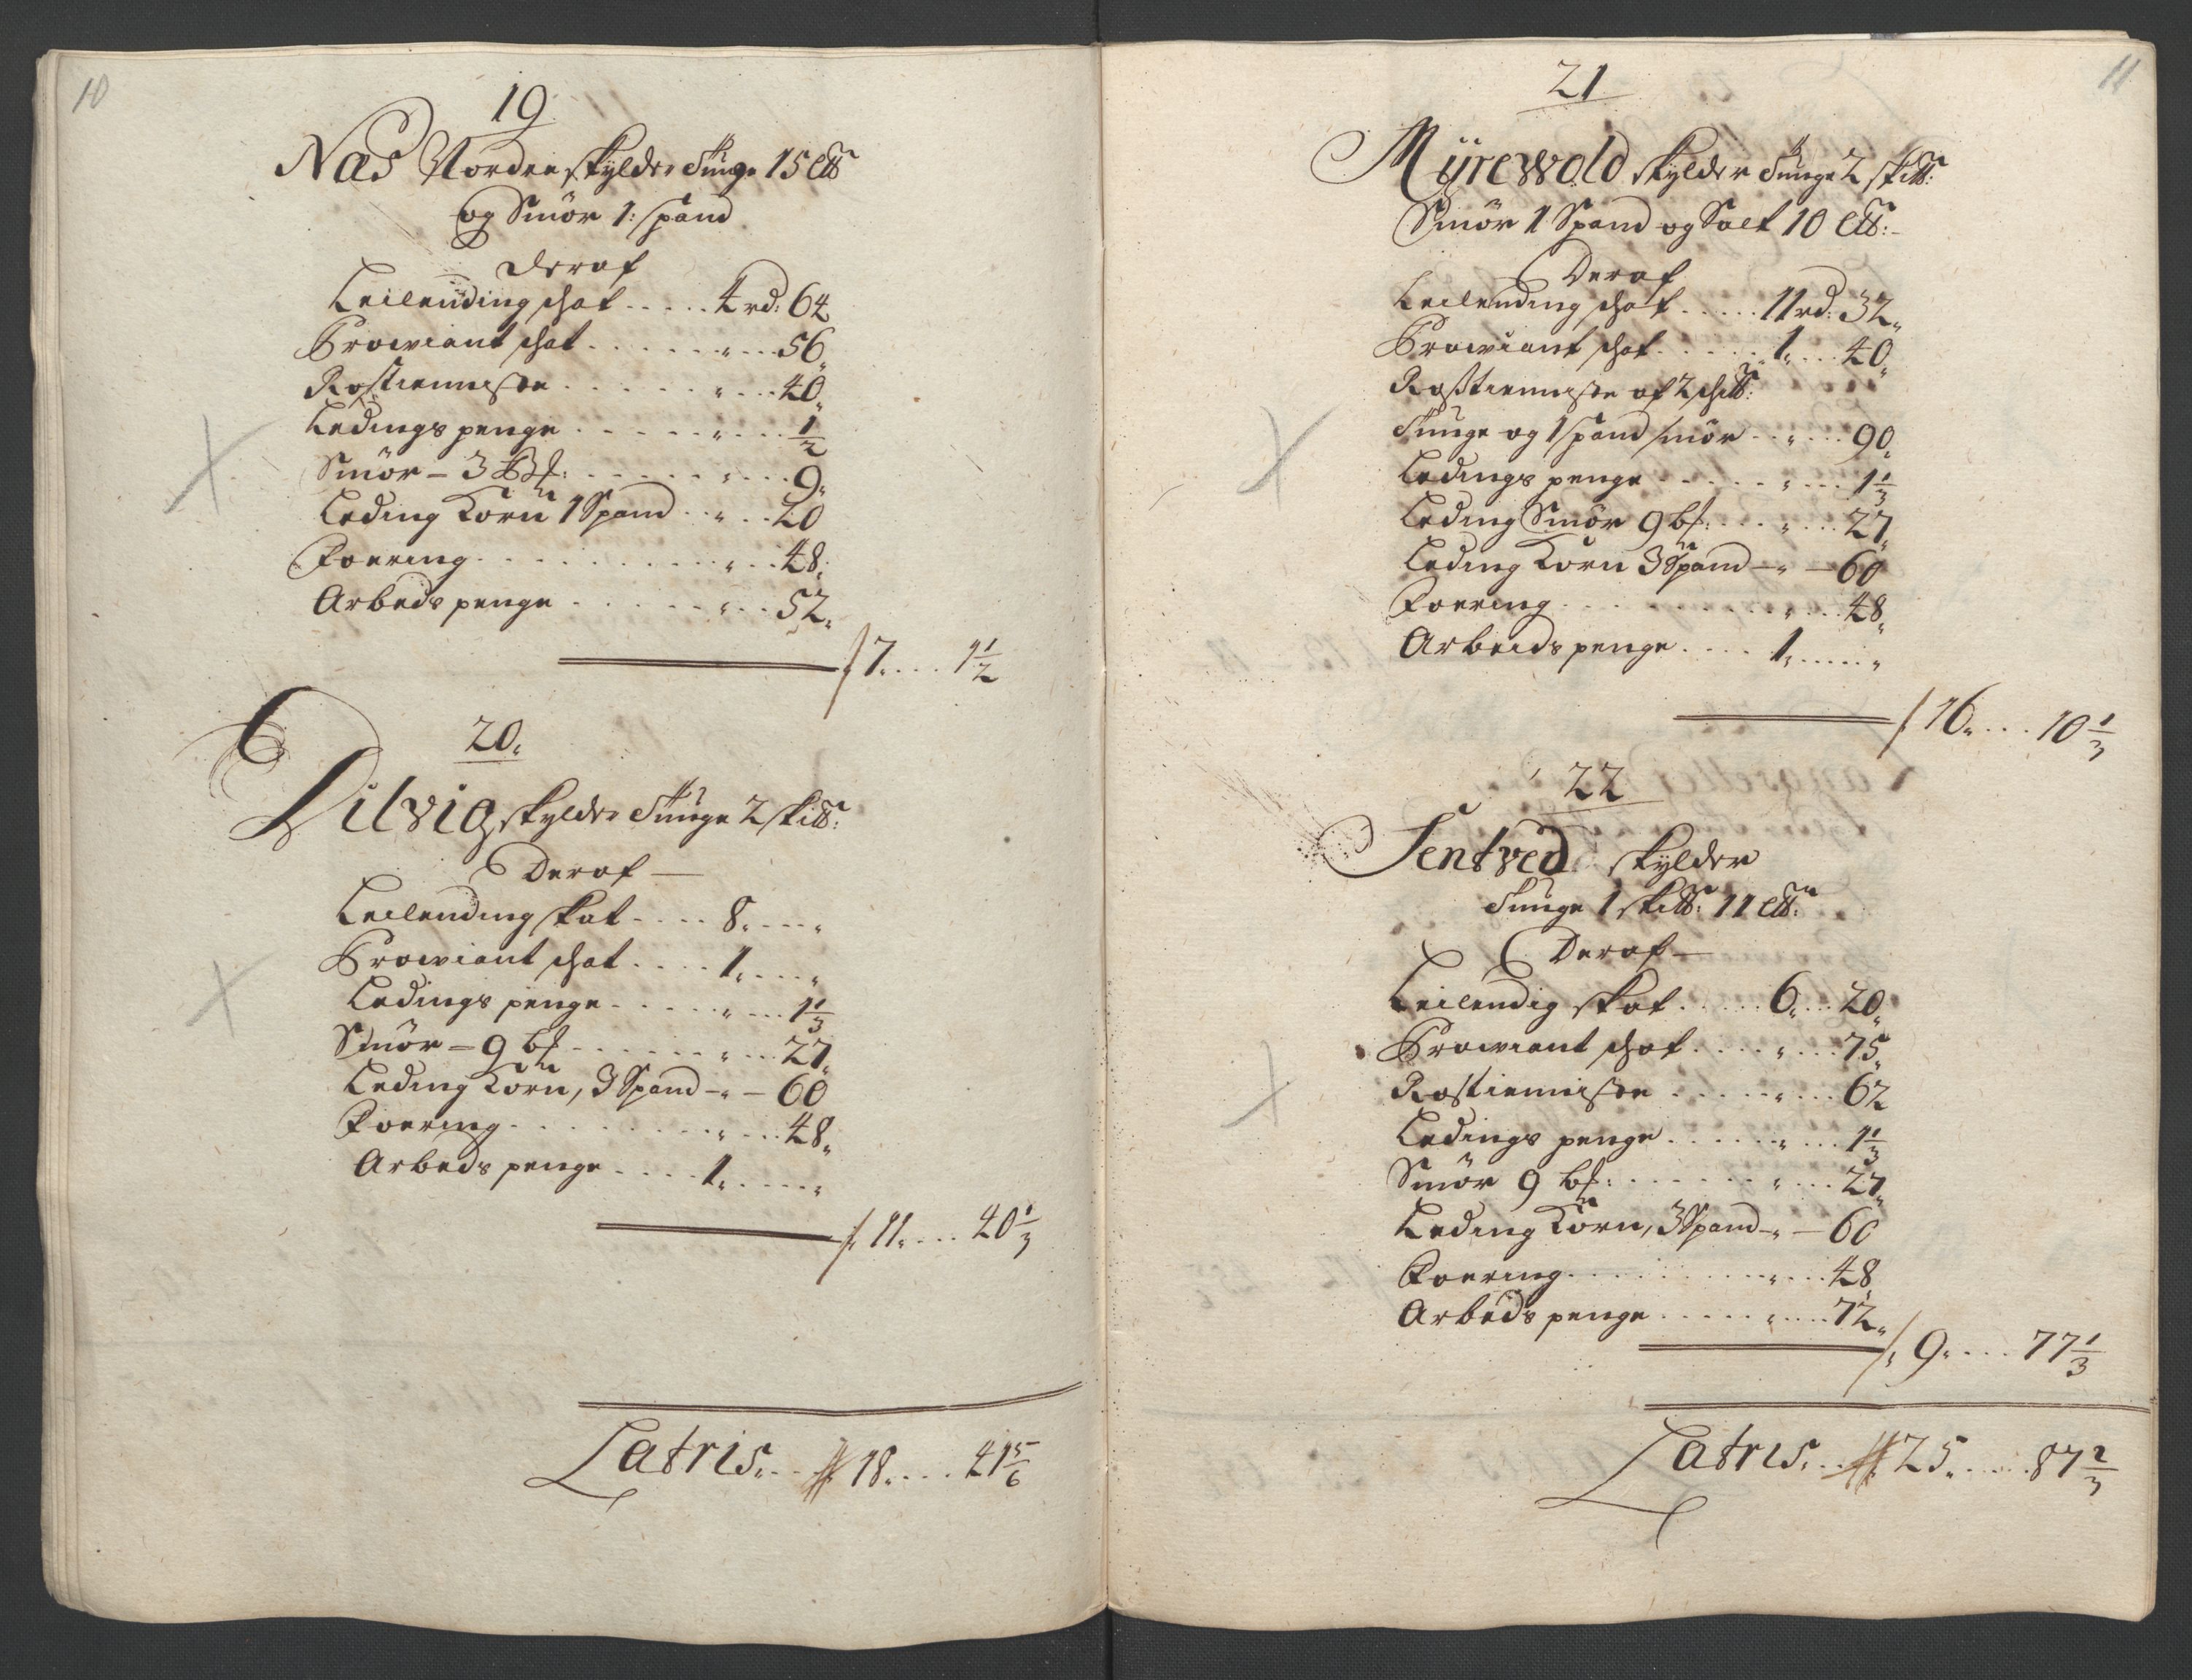 10
19
Næs Norden skylder Tunge 15 ℔
og Smör 1: spand
Deraf
Leilending schat ..... 4 rd: 64
Prowiant schat ...... " ... 56,
Rostienniste ...... " ... 40,
Ledings penge ..... " ... 1/2
Smör - 3 Bf: ...... " ... 9,
Leding Korn 1 Spand .. " .. 20
Foering ......... " ... 48,
Arbeds penge ...... " ... 52,
/ 7, .... 1 1/2
20,
Dilvig skylder Tunge 2 skill:
Deraf —
Leilending skat .... 8, ... "
Prowiant schat .... 1, .... "
Ledings penge ..... " ... 1 1/3
Smör - 9 bf ...... " ... 27,
Leding Korn, 3 Spand - " - 60
Foering ........ " ... 48,
Arbeds penge .... 1, ..... "
/, 11, .... 40 1/3
Latris, ... 18, .... 41 5/6
11
21
Mÿrewold skylder Tunge 2 skill:
Smör 1 Spand og Salt 10 ℔:
Deraf
Leilending schat ..... 11 rd: 32,
Prowiant schat ..... 1, ... 40,
Rosstienniste af 2 schill:
Tunge og 1 spand smör .. " ... 90,
Ledings penge ..... " ... 1 1/3
Leding Smör 9 bf: ... " ... 27,
Leding Korn 3 Spand — " — 60
Foering ........ " ... 48,
Arbeids penge .... 1, ..... "
/, 16, .... 10 1/3
22
Tentved skylder
Tunge 1 skill: 11 ℔:
Deraf —
Leilendig skat ..... 6, ... 20,
Prowiant schat .... " ... 75,
Rostienniste ..... " ... 62
Ledings penge ...... " ... 1 1/3
Smör 9 bf: ...... " ... 27,
Leding Korn, 3 Spand - " — 60
Foering ......... " ... 48,
Arbeds penge ..... " .... 72,
/, 9, .... 77 1/3
Latris, ... 25, ..... 87 2/3